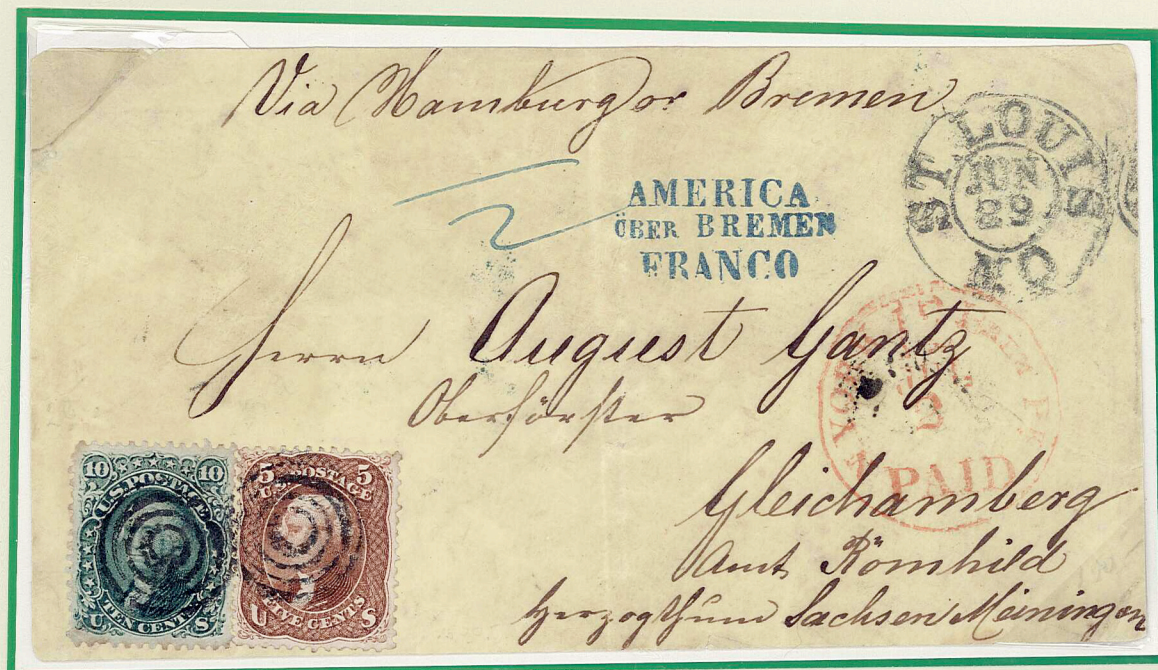 Via Hamburg or Bremen
AMERICA
ÜBER BREMEN
FRANCO
ST. LOUIS
JUN
29
MO
Herrn August Gantz
Oberförster
YORK
PAID
Gleichamberg
Amt Römhild
Herzogthum Sachsen Meiningen
10 10
U.S. POSTAGE
TEN CENTS
U S
5 5
U.S. POSTAGE
FIVE CENTS
U S